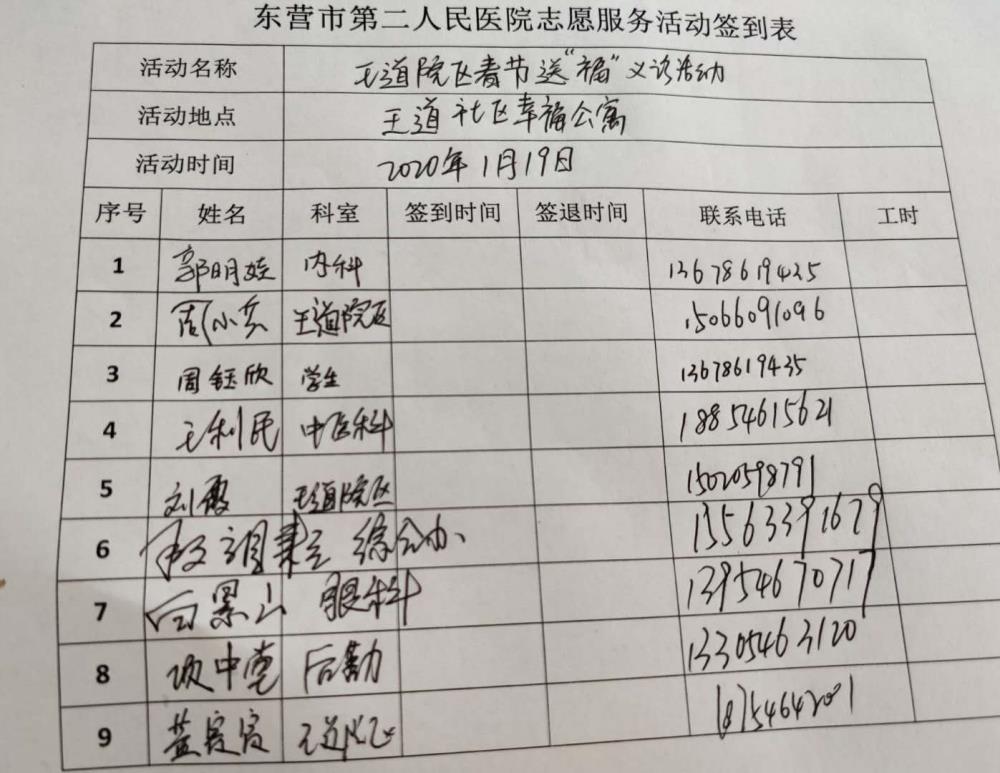 东营市第二人民医院志愿服务活动签到表
活动名称 王道院区春节送“福”义诊活动
活动地点 王道社区幸福公寓
活动时间 2020年1月19日
序号 姓名 科室 签到时间 签退时间 联系电话 工时
1 郭明娃 内科 13678619425
2 周小兵 王道院区 15066091096
3 周钰欣 学生 13678619435
4 王利民 中医科 18854615621
5 刘霞 王道院区 15020598791
6 综合办 13563391679
7 白景山 眼科 13954670717
8 项中堂 后勤 13305463120
9 王道院区